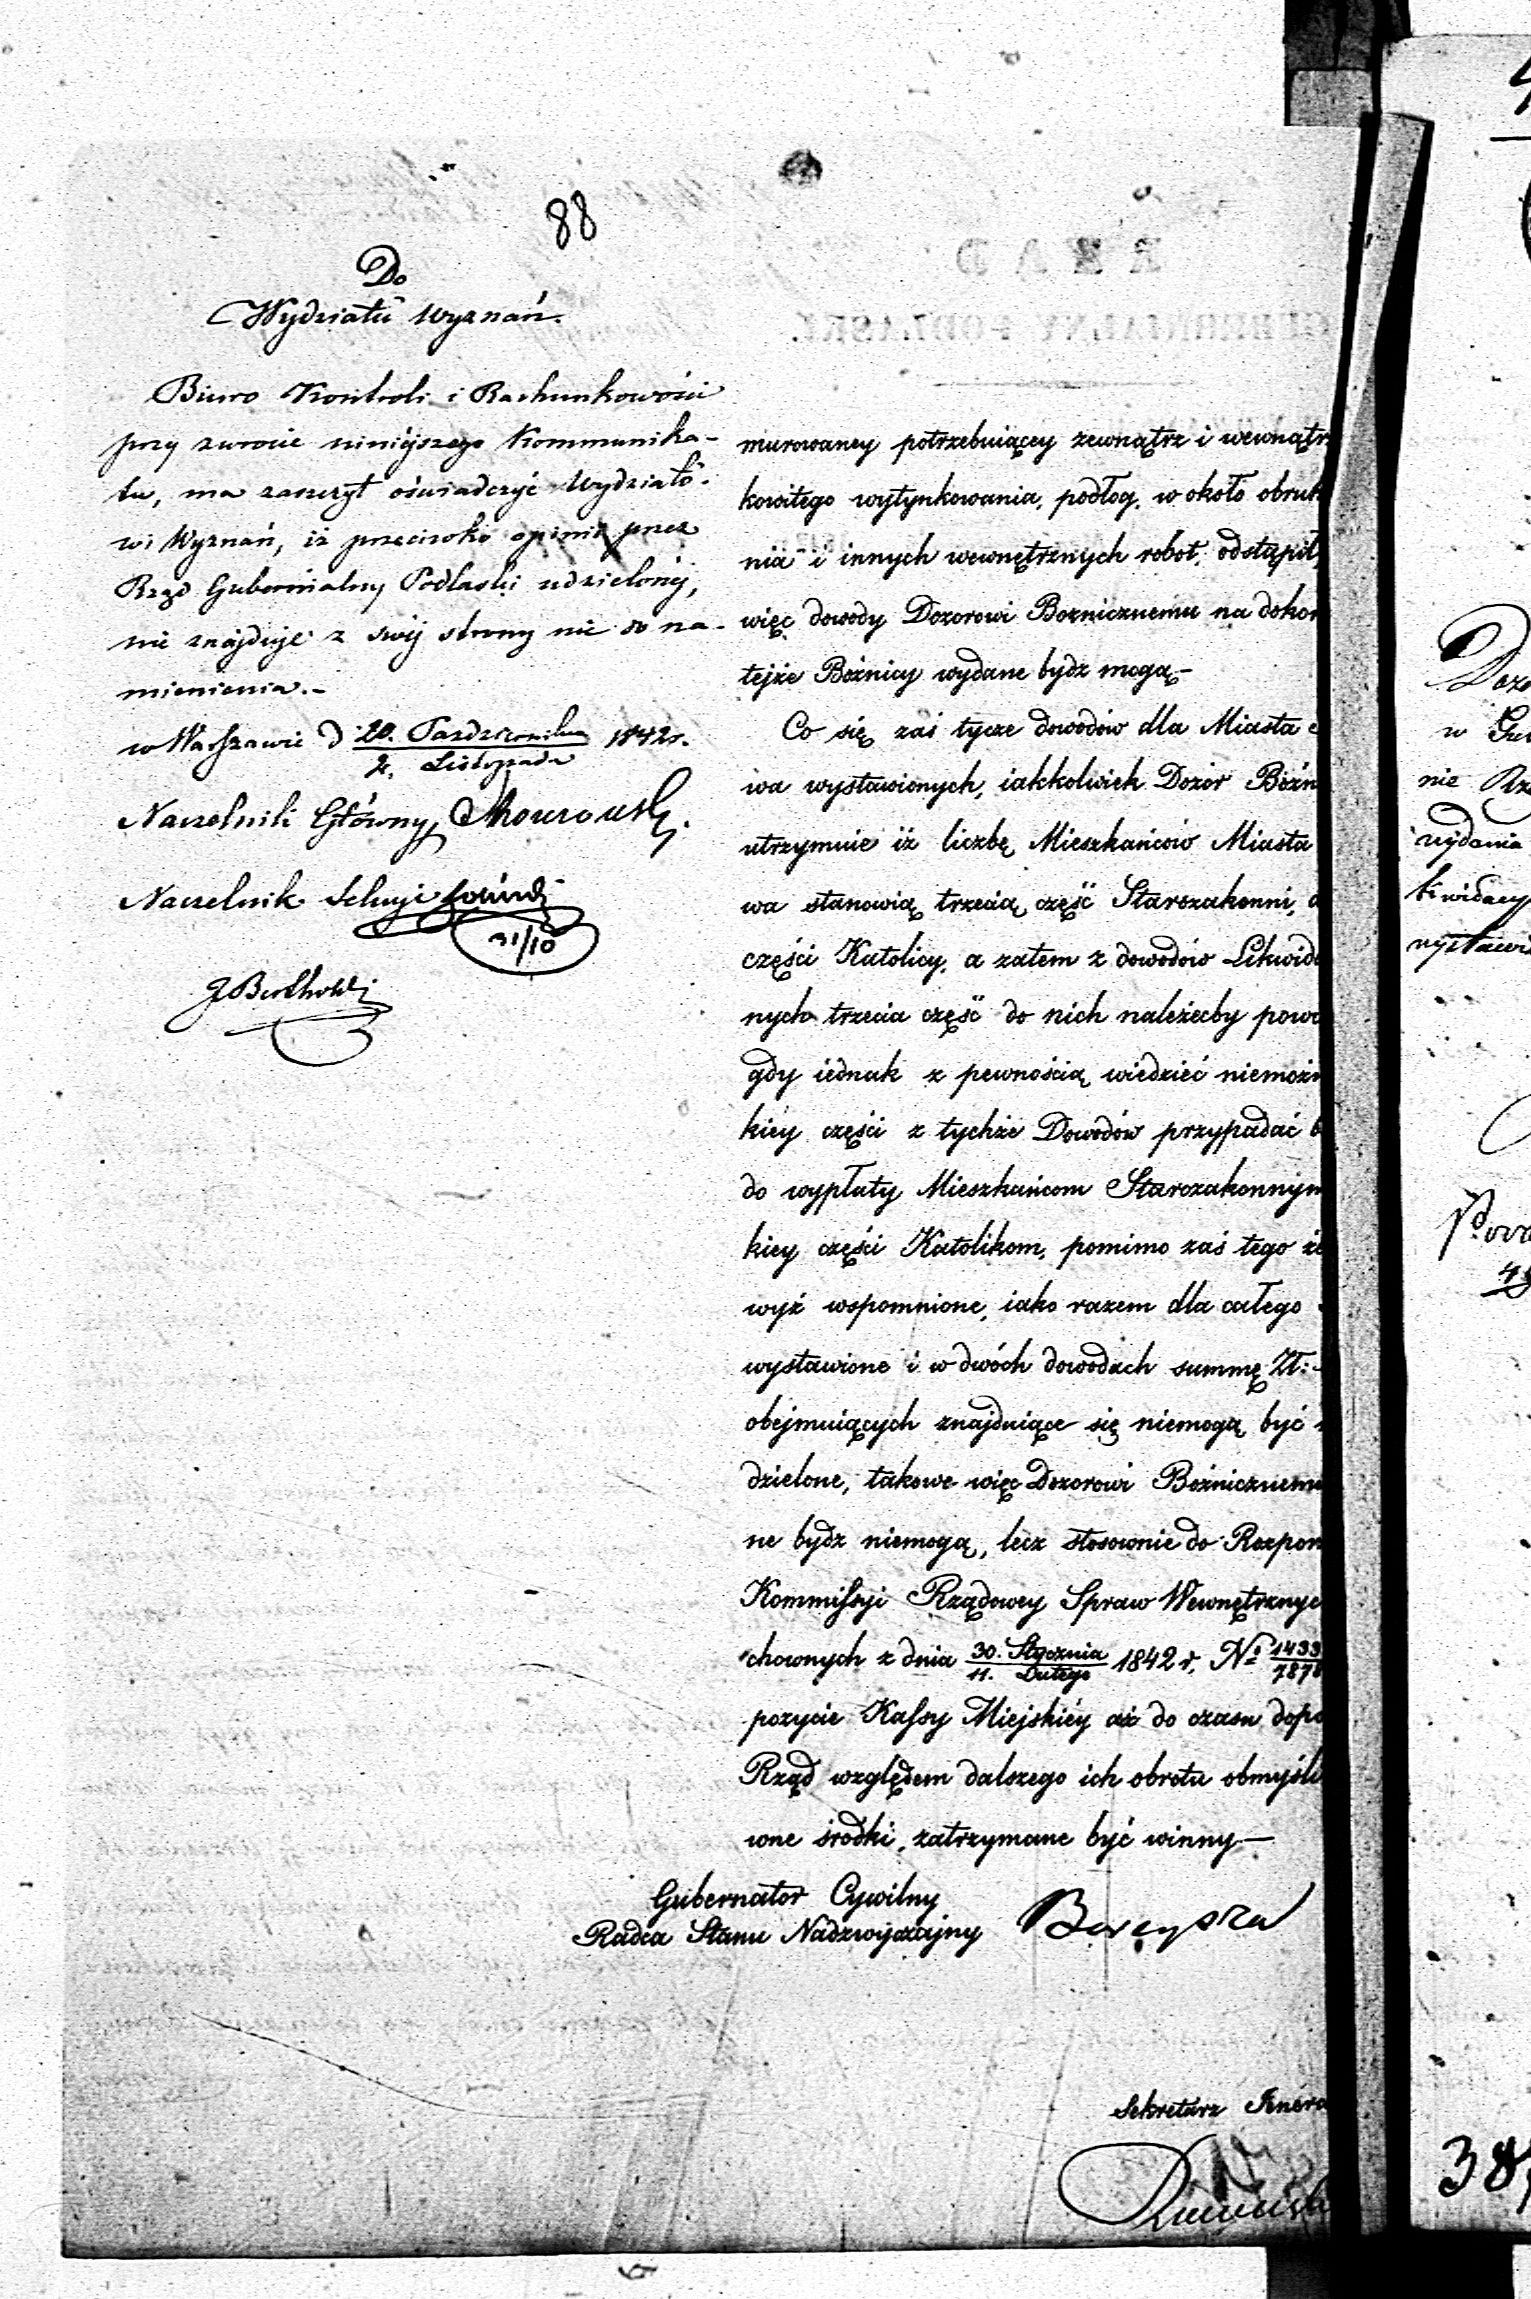 88
Do
Wydziału Wyznań.
Biuro Kontroli i Rachunkowości
przy zwrocie niniéjszego Kommunika-
tu, ma zaszczyt oświadczyć Wydziało-
wi Wyznań, iż przeciwko opinii przez
Rząd Gubernialny Podlaski udzielonéj,
nie znajduje z swéj strony nic do na-
mienienia.-
w Warszawie d 20. Października 1842 r.
2. Listopada
Naczelnik Główny
Naczelnik Sekcyi
31/10
murowaney potrzebuiącey zewnątrz i wewnątrz
kowitego wytynkowania, podłog, w około obruk
nia i innych wewnętrznych robot, odstąpił,
więc dowody Dozorowi Bozniczuemu na dokoń
tejże Bóżnicy wydane bydz mogą-
Co się zaś tycze dowodów dla Miasta
wa wystawionych, iakkolwiek Dozór Bóżn
utrzymuie iż liczbę Mieszkańców Miasta
wa stanowią trzecią część Starozakonni, d
części Katolicy, a zatem z dowodów Likwida
nych trzecia część do nich należećby powi
gdy iednak z pewnością wiedzieć niemożn
kiey części z tychże Dowodów przypadać b
do wypłaty Mieszkańcom Starozakonnym
kiey części Katolikom, pomimo zaś tego że
wyż wspomnione, iako razem dla całego
wystawione i w dwóch dowodach summę Zł:
obejmuiących znajduiące się niemogą być
dzielone, takowe więc Dozorowi Bożniczuemu
ne bydz niemogą, lecz stosownie do Rozpor
Kommissyi Rządowey Spraw Wewnętrznych
chownych z dnia 30. Stycznia 1842 r. No 1433
11. Lutego 7878
pozycie Kassy Miejskiéy aż do czasu dopo
Rząd względem dalszego ich obrotu obmyśli
wne środki, zatrzymane być winny-
Gubernator Cywilny
Radca Stanu Nadzwyczajny
Sekretarz Jenera
Dozo
w Gu
nie Rzą
wydania
kwidacy
wystawi
38